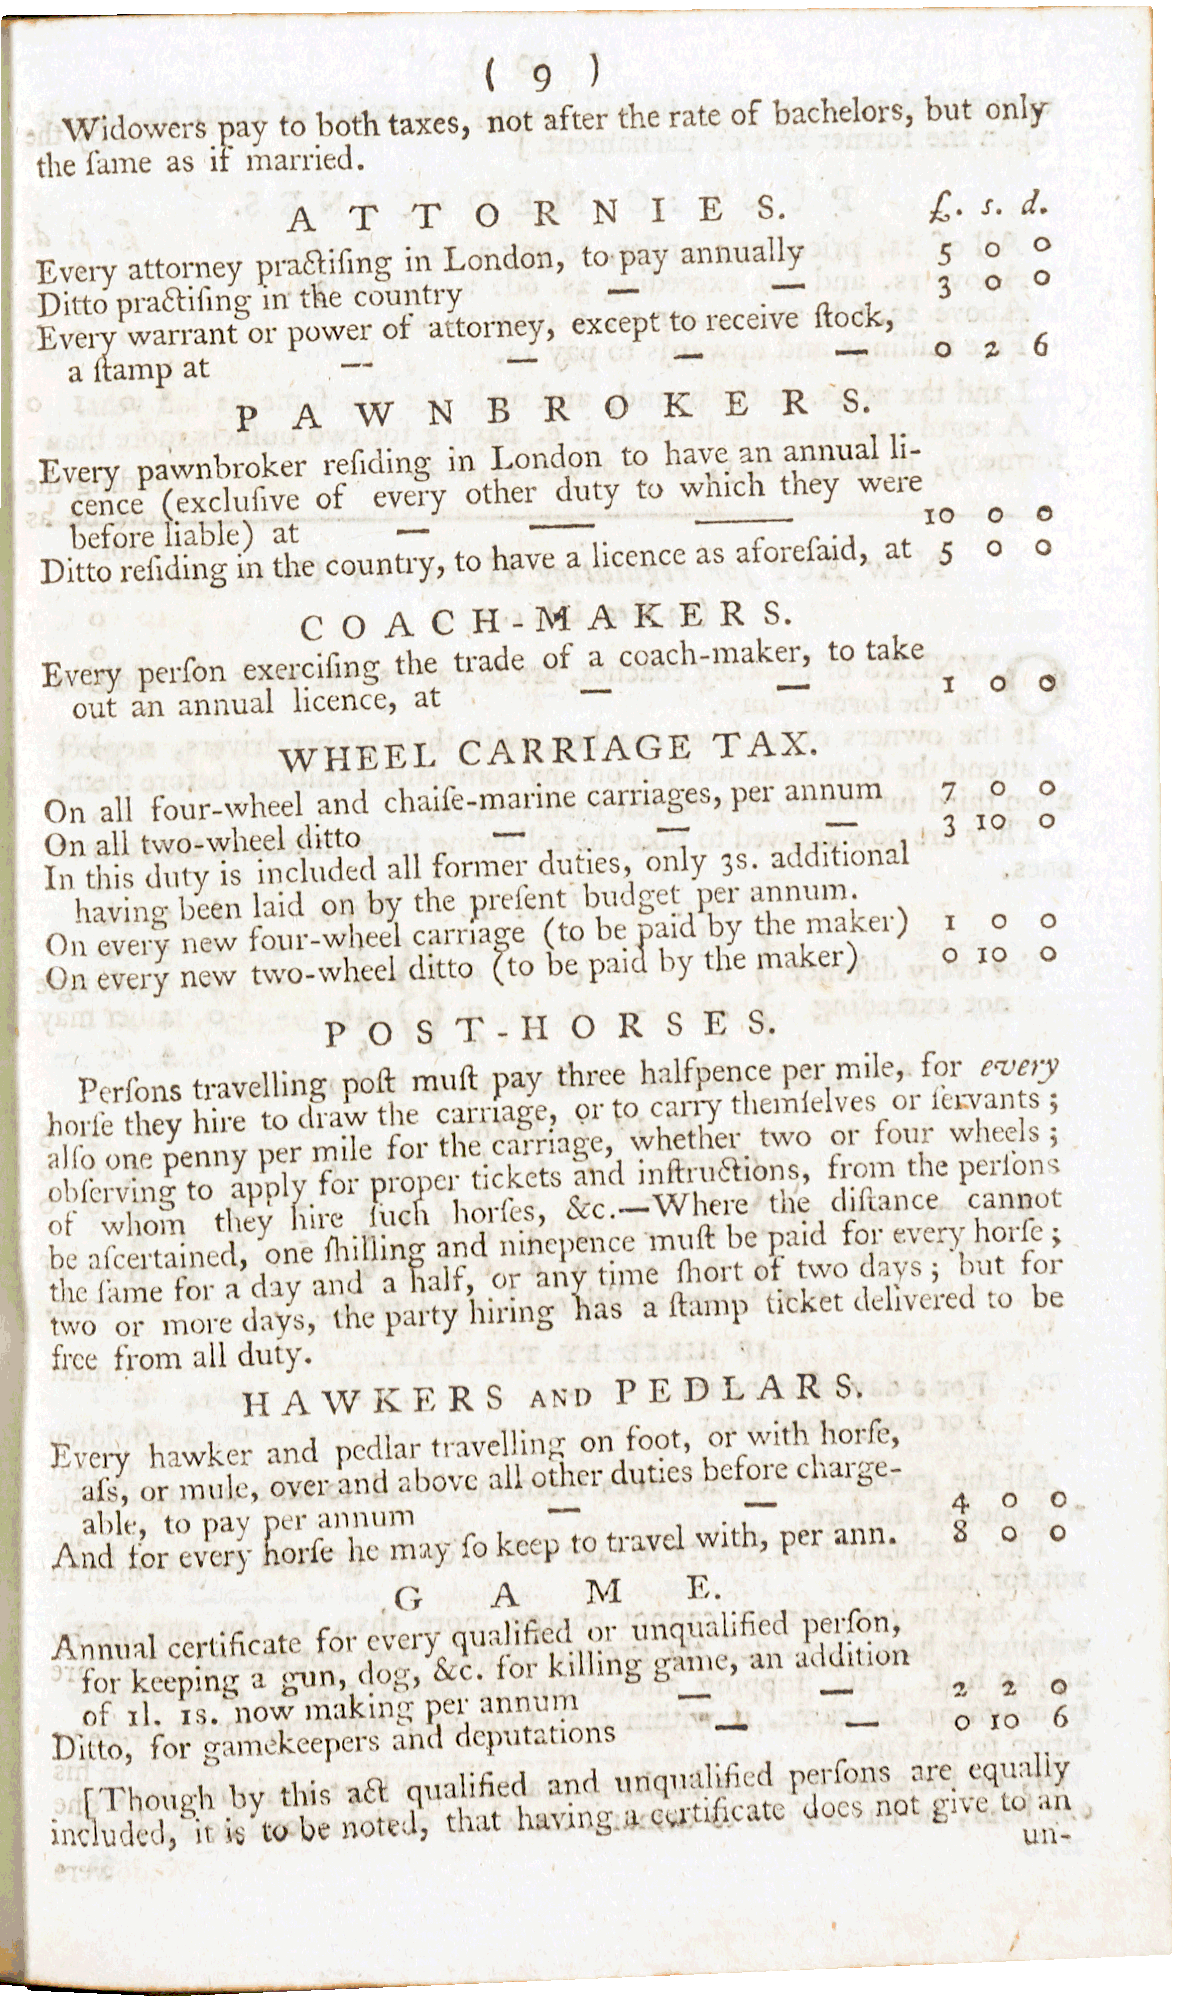 ( 9 )
Widowers pay to both taxes, not after the rate of bachelors, but only
the ſame as if married.
ATTORNIES. £. s. d.
Every attorney practiſing in London, to pay annually 5 0 0
Ditto practiſing in the country — — 3 0 0
Every warrant or power of attorney, except to receive ſtock,
a ſtamp at — — — — 0 2 6
PAWNBROKERS.
Every pawnbroker reſiding in London to have an annual li-
cence (excluſive of every other duty to which they were
before liable) at — — — 10 0 0
Ditto reſiding in the country, to have a licence as aforeſaid, at 5 0 0
COACH-MAKERS.
Every perſon exerciſing the trade of a coach-maker, to take
out an annual licence, at — — 1 0 0
WHEEL CARRIAGE TAX.
On all four-wheel and chaiſe-marine carriages, per annum 7 0 0
On all two-wheel ditto — — — 3 10 0
In this duty is included all former duties, only 3s. additional
having been laid on by the preſent budget per annum.
On every new four-wheel carriage (to be paid by the maker) 1 0 0
On every new two-wheel ditto (to be paid by the maker) 0 10 0
POST-HORSES.
Perſons travelling poſt muſt pay three halfpence per mile, for every
horſe they hire to draw the carriage, or to carry themſelves or ſervants ;
alſo one penny per mile for the carriage, whether two or four wheels ;
obſerving to apply for proper tickets and inſtructions, from the perſons
of whom they hire ſuch horſes, &c.—Where the diſtance cannot
be aſcertained, one ſhilling and ninepence muſt be paid for every horſe ;
the ſame for a day and a half, or any time ſhort of two days ; but for
two or more days, the party hiring has a ſtamp ticket delivered to be
free from all duty.
HAWKERS AND PEDLARS.
Every hawker and pedlar travelling on foot, or with horſe,
aſs, or mule, over and above all other duties before charge-
able, to pay per annum — — 4 0 0
And for every horſe he may ſo keep to travel with, per ann. 8 0 0
GAME.
Annual certificate for every qualified or unqualified perſon,
for keeping a gun, dog, &c. for killing game, an addition
of 1l. 1s. now making per annum — — 2 2 0
Ditto, for gamekeepers and deputations — — 0 10 6
[Though by this act qualified and unqualified perſons are equally
included, it is to be noted, that having a certificate does not give to an
un-